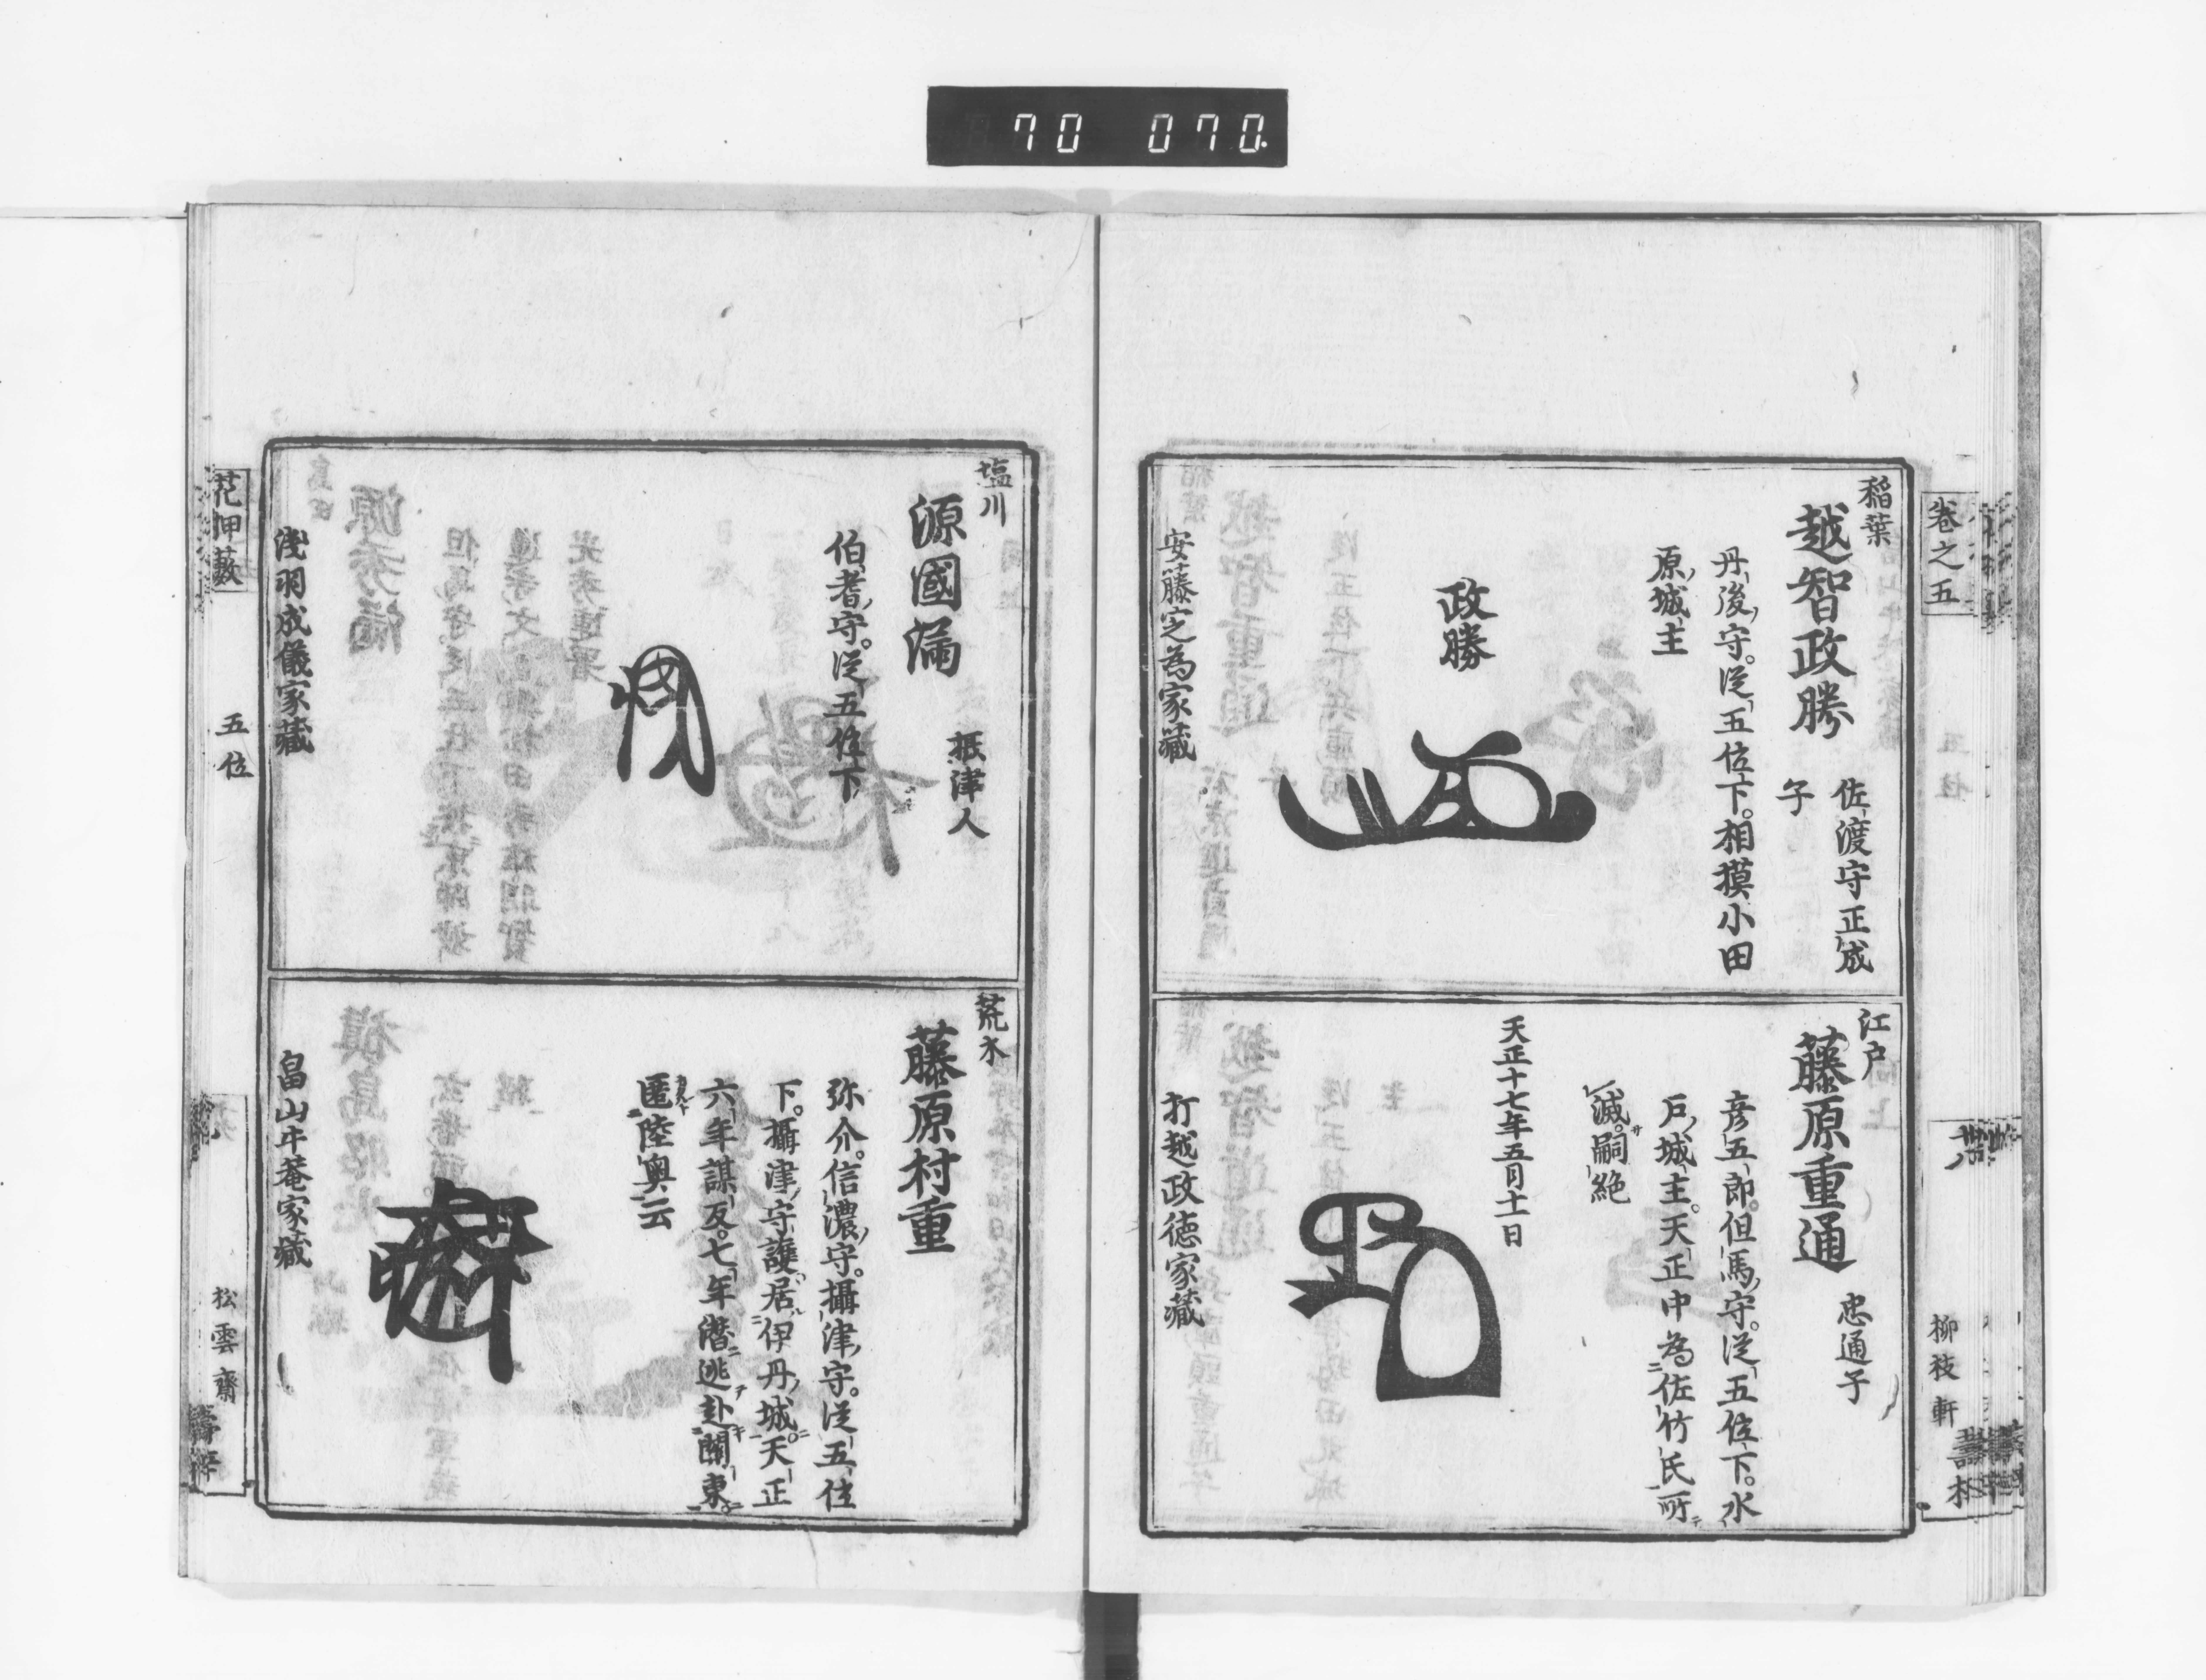 70 070
卷之五
柳枝軒
稲葉
越智政勝
佐渡守正成
子
丹後守。從五位下。相摸小田
原城主
政勝
安藤定為家藏
江戸
藤原重通
忠通子
彦五郎。但馬守。從五位下。水
戸城主。天正中為佐竹氏所
滅。嗣絶
天正十七年五月十一日
打越政德家藏
塩川
源國滿
摂津人
伯耆守。從五位下
淺羽成儀家藏
荒木
藤原村重
弥介。信濃守。攝津守。從五位
下。攝津守護居伊丹城。天正
六年謀反。七年潜逃赴關東。
匿陸奥云
畠山牛菴家藏
花押藪
五位
松雲齋